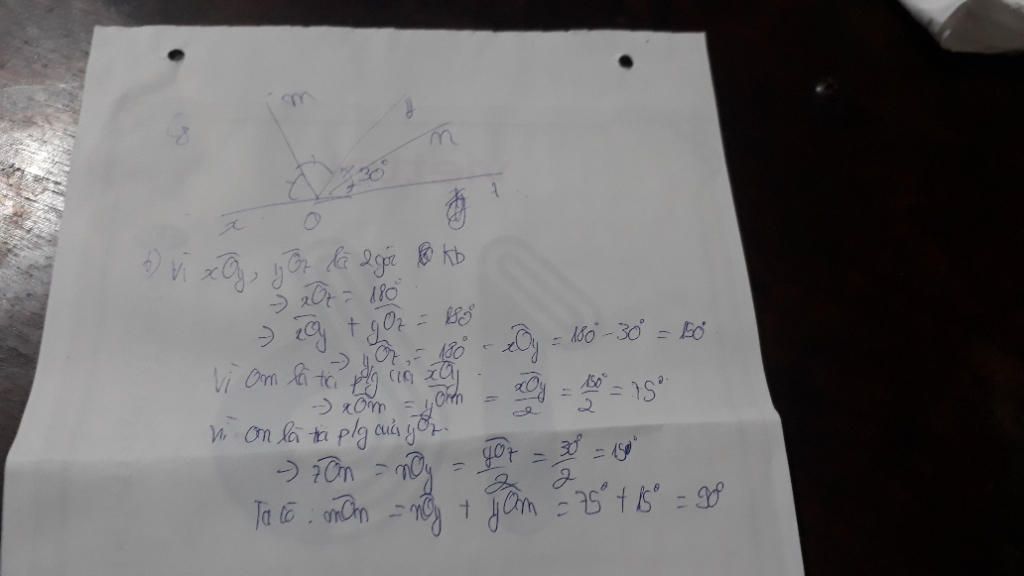 m
y
n
30°
x
O
b) Vì xOy, yOz là 2 góc kb
→ xOz = 180°
→ xOy + yOz = 180°
→ yOz = 180° - xOy = 180° - 30° = 150°
Vì Om là tia p/g của xOy
→ xOm = yOm = xOy/2 = 150°/2 = 75°
Vì On là tia p/g của yOz.
→ zOn = nOy = yOz/2 = 30°/2 =
Ta có: mOn = nOy + yOm = 75° + 15° = 90°